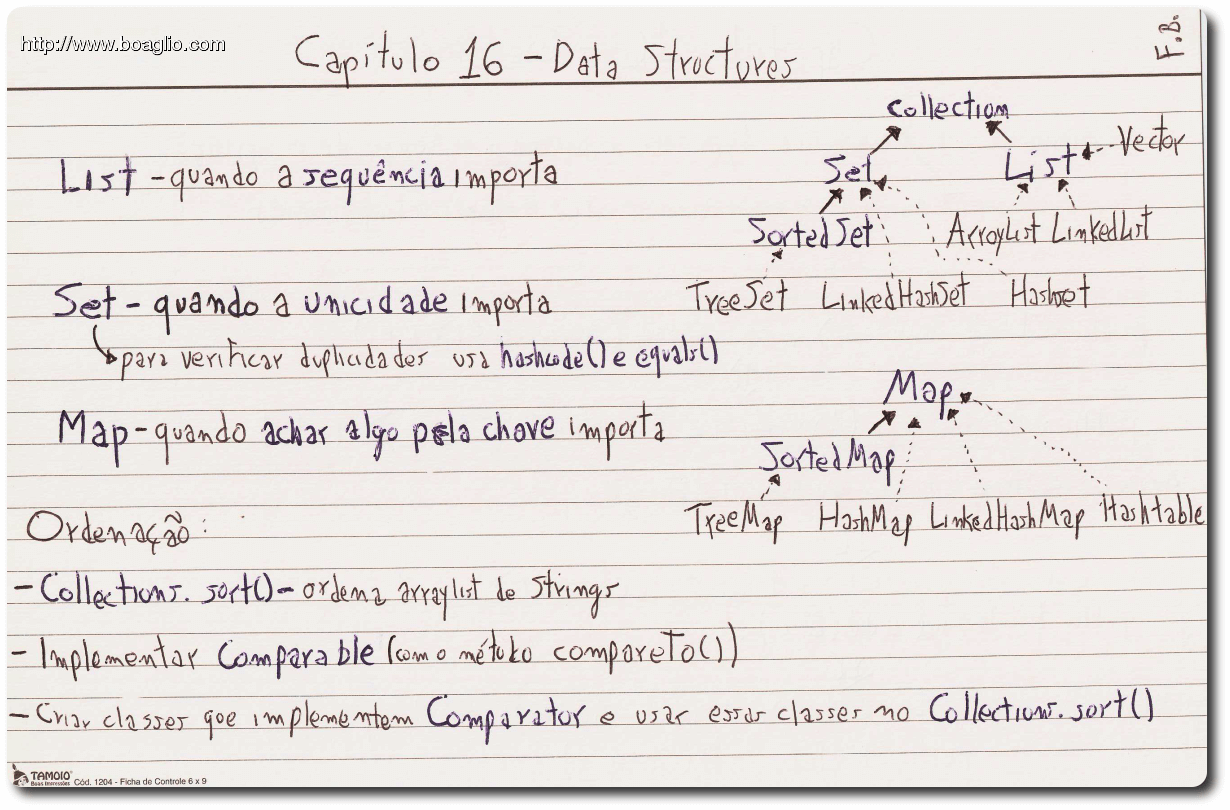 http://www.boaglio.com
F.B.
Capítulo 16 - Data Structures
Collection
List - quando a sequência importa
Set List Vector
SortedSet ArrayList LinkedList
Set - quando a unicidade importa
TreeSet LinkedHashSet Hashset
para verificar duplicidades usa hashcode() e equals()
Map
Map - quando achar algo pela chave importa
SortedMap
TreeMap HashMap LinkedHashMap Hashtable
Ordenação:
- Collections.sort() - ordena arraylist de Strings
- Implementar Comparable (com o método compareTo())
- Criar classes que implementem Comparator e usar essas classes no Collections.sort()
TAMOIO
Boas Impressões Cód. 1204 - Ficha de Controle 6 x 9